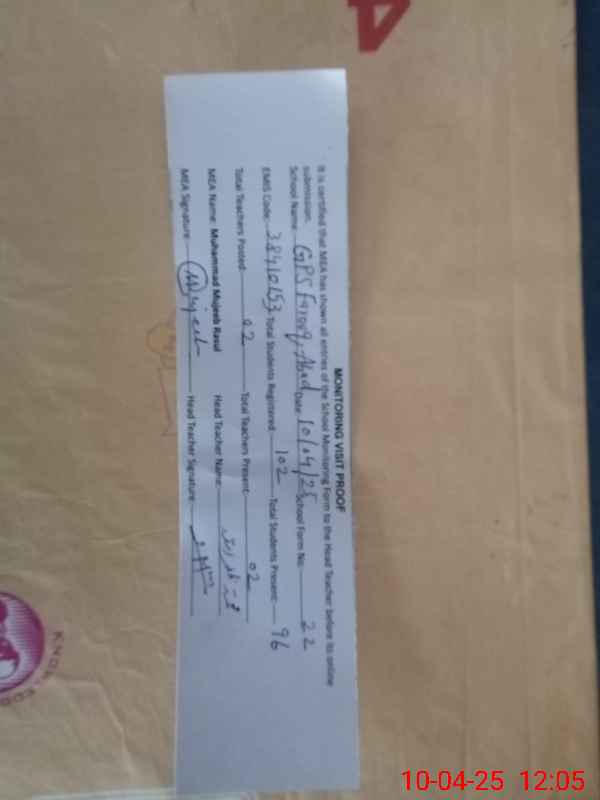 MONITORING VISIT PROOF
It is certified that MEA has shown all entries of the School Monitoring Form to the Head Teacher before its online
submission.
School Name: GPS Farooq Abad Date: 10/04/25 School Form No: 22
EMIS Code: 38410153 Total Students Registered: 102 Total Students Present: 96
Total Teachers Posted: 02 Total Teachers Present: 02
MEA Name: Muhammad Mujeeb Rasul Head Teacher Name:
MEA Signature: Mujeeb Head Teacher Signature:
10-04-25 12:05